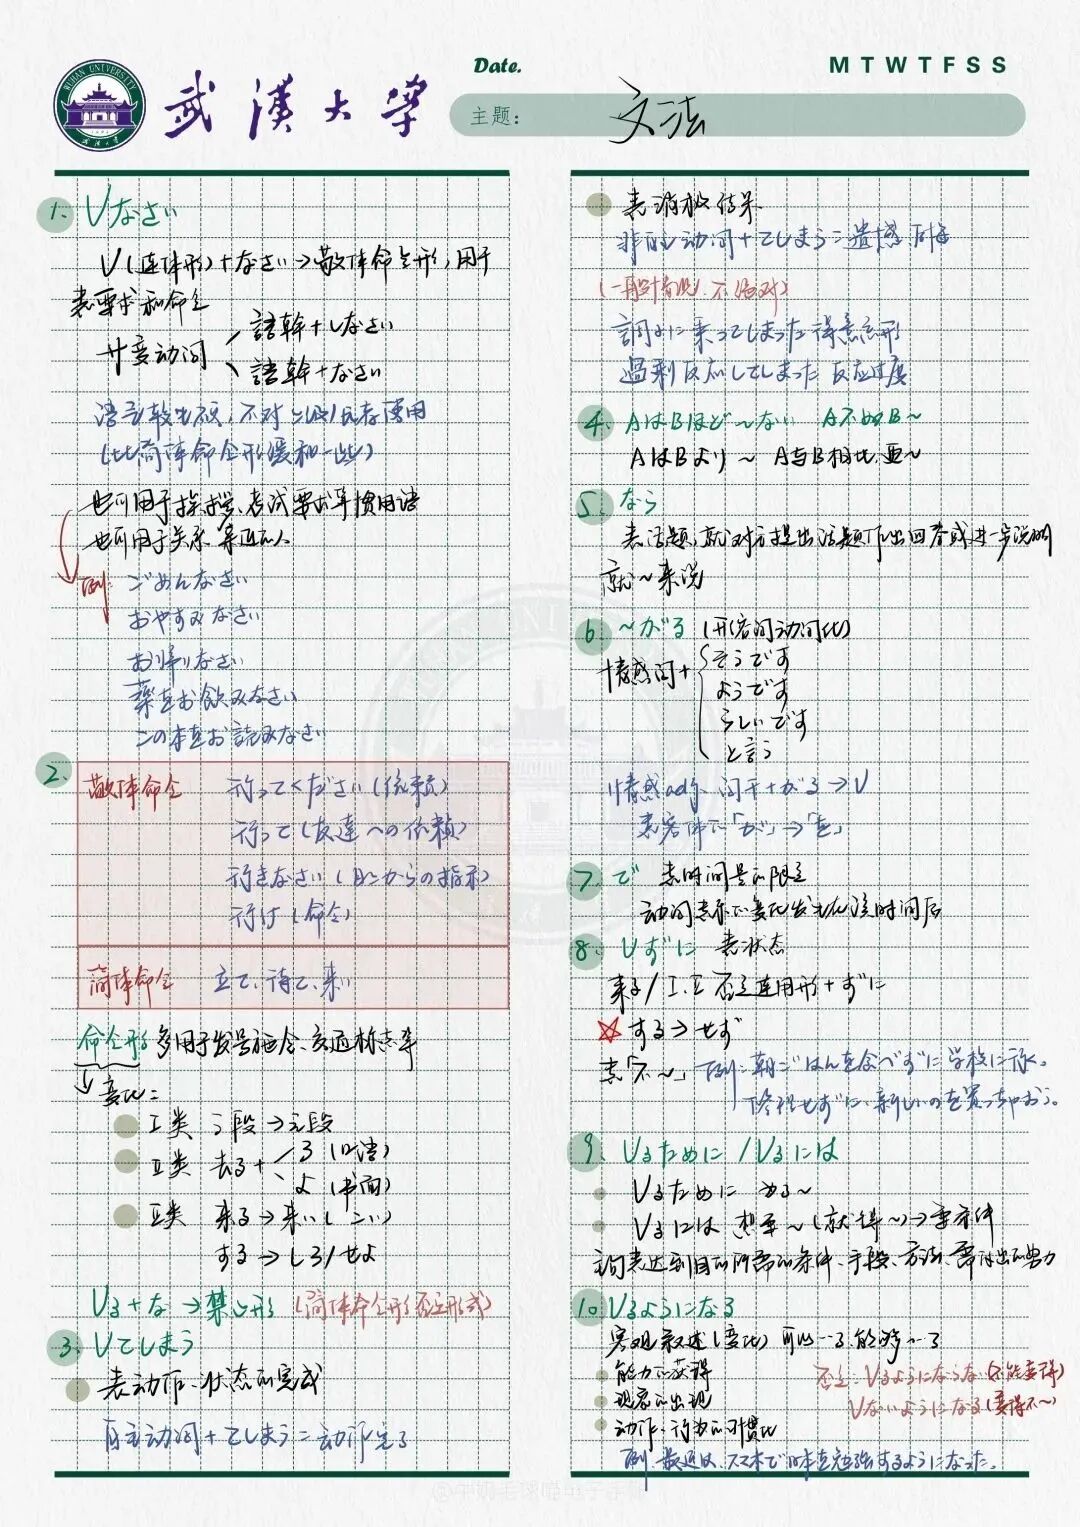 WUHAN UNIVERSITY
武汉大学
武漢大学
Date.
M T W T F S S
主题：
文法
1. Vなさい
V(连体形)+なさい→敬体命令形，用于
表要求和命令
サ变动词
語幹+しなさい
語幹+なさい
语气较生硬，不对
(比简体命令形缓和一些)
也可用于 考试要求等惯用语
也可用于关系亲近的人
例: ごめんなさい
おやすみなさい
お帰りなさい
薬をお飲みなさい
この本をお読みなさい
2.
敬体命令 行ってください(依頼)
行って(友達への依頼)
行きなさい( からの指示)
行け(命令)
简体命令 立て、待て、来い
命令形 多用于发号施令、交通标志等
变化:
I类 う段→え段
II类 去る+
ろ(口语)
よ(书面)
III类 来る→来い(こい)
する→しろ/せよ
Vる+な→禁止形 (简体命令形否定形式)
3. Vてしまう
表动作、状态的完成
自主动词+てしまう=动作完了
表消极结果
非自主动词+てしまう=遗憾、后悔
(一般情况,不绝对)
調子に乗ってしまった 得意忘形
過剰反応してしまった 反应过度
4. AはBほど~ない A不如B~
AはBより~ A与B相比,更~
5. なら
表话题,就对方提出话题作出回答或进一步说明
就~来说
6. ~がる (形容词动词化)
情感词+
そうです
ようです
らしいです
と言う
情感adj. 词干+がる→V
表客体的「が」→「を」
7. で 表时间量的限定
动词表示的变化发生在该时间后
8. Vずに 表状态
来る/I、II 否定连用形+ずに
☆ する→せず
表「不~」 例: 朝ごはんを食べずに学校に行く。
修理せずに、新しいのを買っちゃおう。
9. Vるために/Vるには
Vるために 为了~
Vるには 想要~(就得~)→需条件
主句表达到目的所需的条件、手段、方法、需付出的努力
10. Vるようになる
客观叙述(变化) 可以…了,能够…了
能力的获得
现象的出现
动作、行为的习惯化
否定: Vるようにならない(不能变得)
Vないようになる(变得不~)
例. 最近は、スマホで日本語を勉強するようになった。